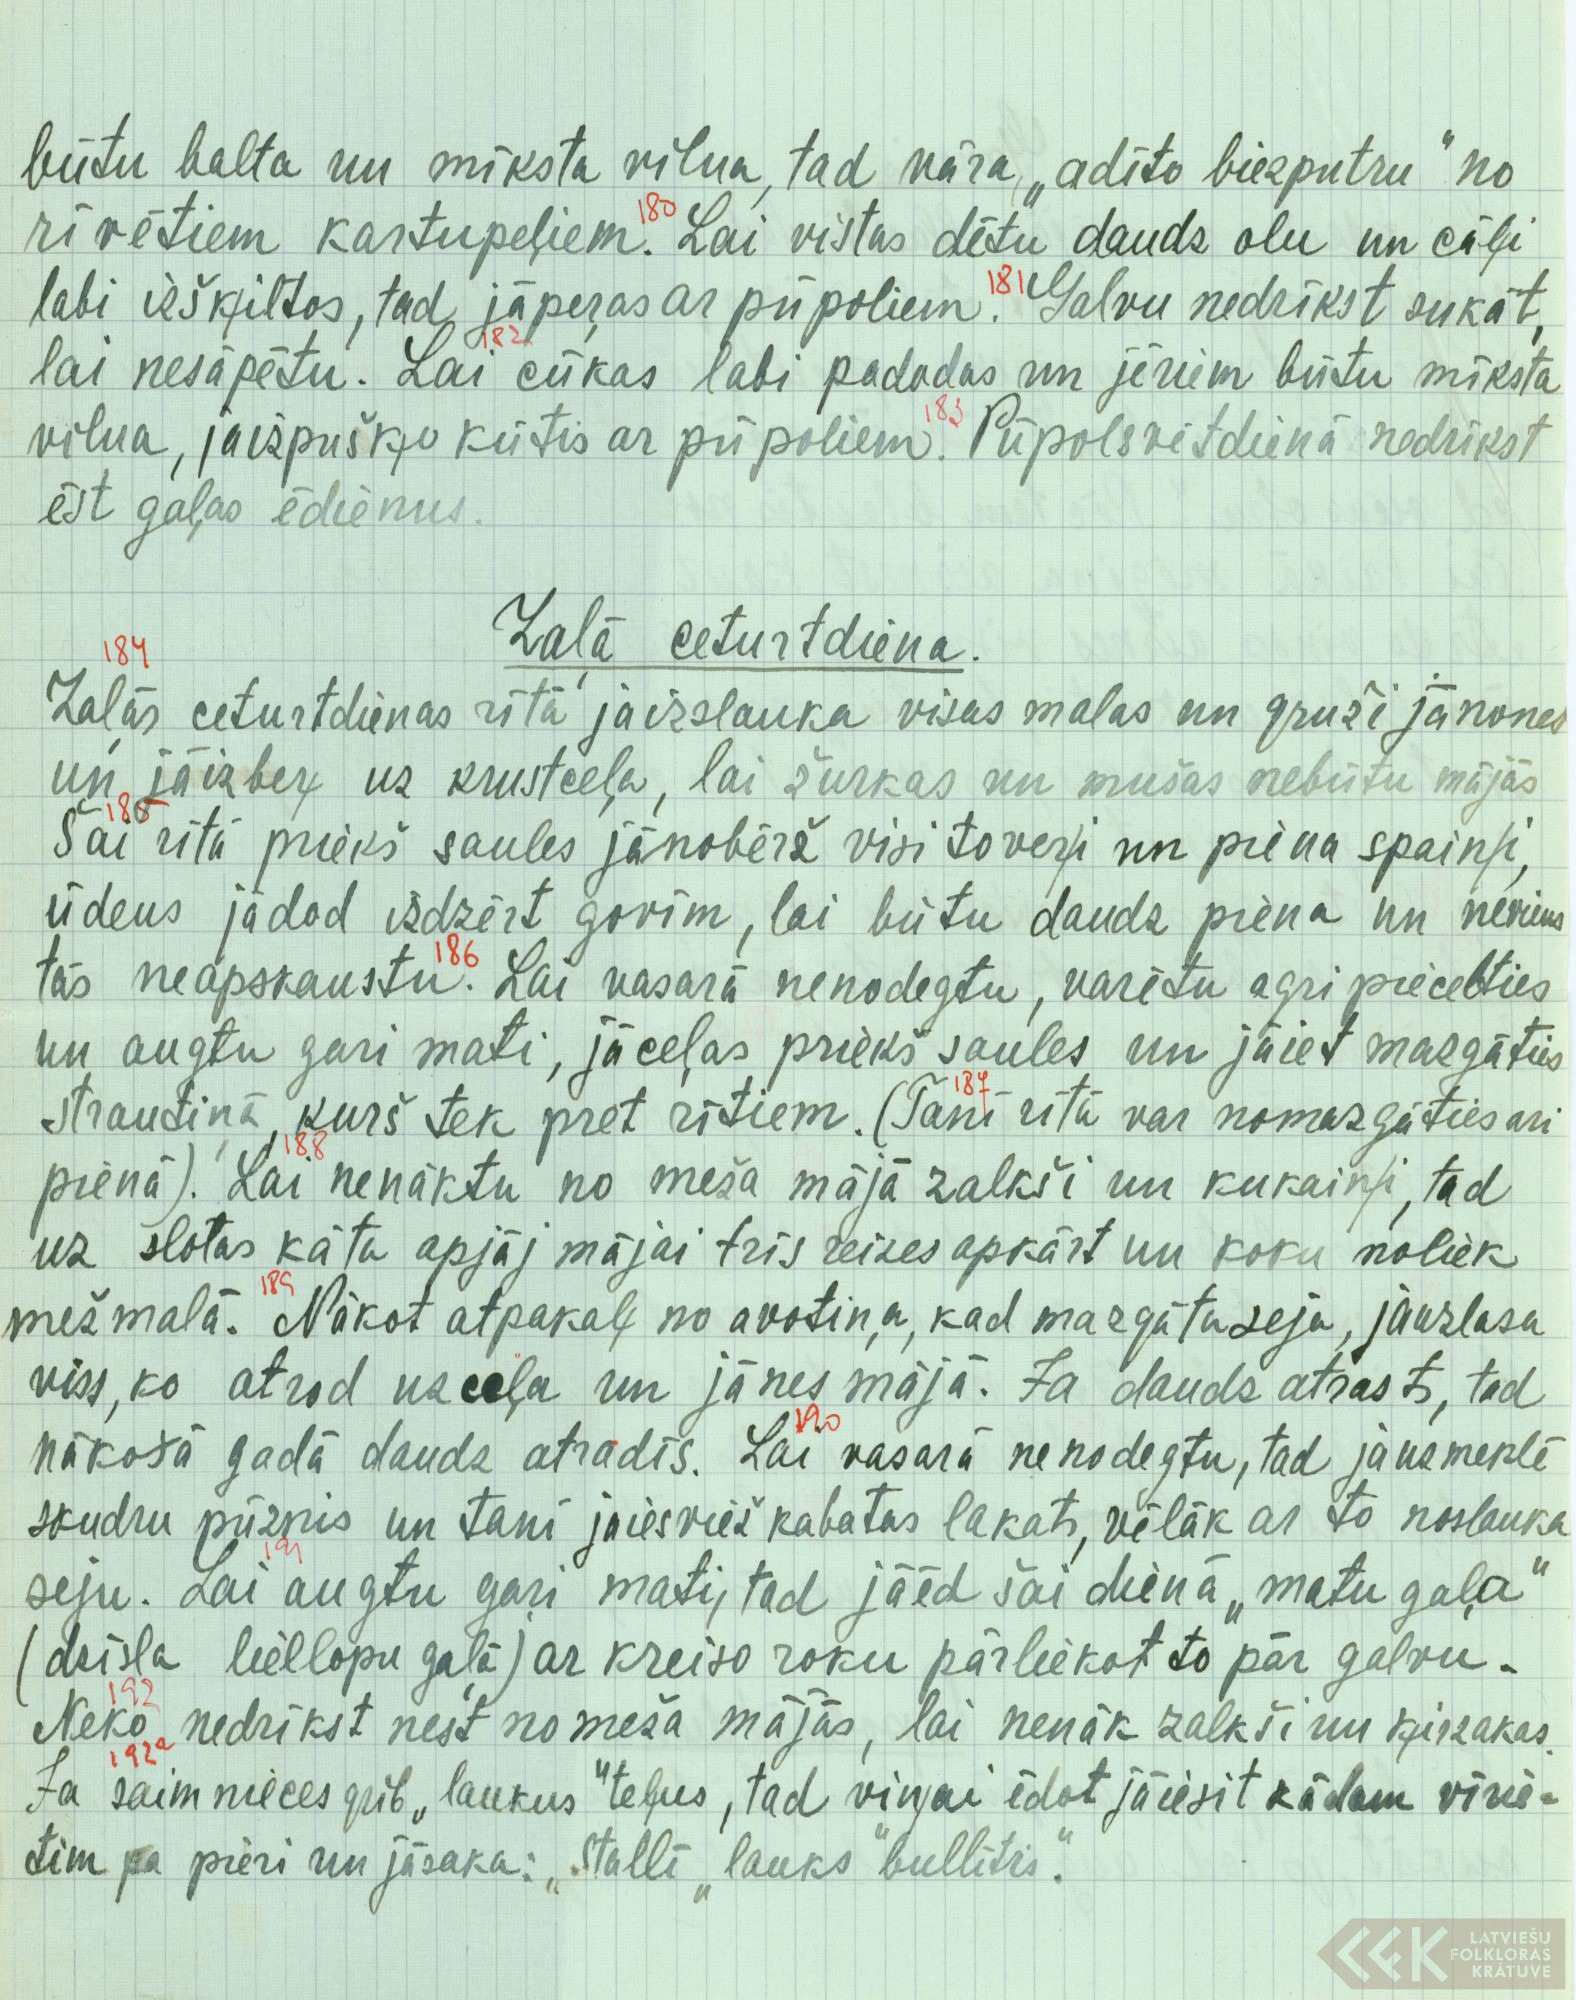 būtu balta un mīksta vilna, tad vāra „adīto biezputru" no
rīvētiem kartupeļiem. 180 Lai vistas dētu daudz olu un cāļi
labi izšķiltos, tad jāpeŗas ar pūpoliem. 181 Galvu nedrīkst sukāt,
lai nesāpētu. 182 Lai cūkas labi padodas un jēriem būtu mīksta
vilna, jaizpušķo kūtis ar pūpoliem. 183 Pūpolsvētdienā nedrīkst
ēst gaļas ēdienus.
Zaļā ceturtdiena.
184
Zaļās ceturtdienas rītā jaizslauka visas malas un gruži jānones
un jāizbeŗ uz krustceļa, lai žurkas un mušas nebūtu mājās
185 Šai rītā priekš saules jānobērž visi toveŗi un piena spaiņi,
ūdens jādod izdzērt govīm, lai būtu daudz piena un neviens
tās neapskaustu. 186 Lai vasarā nenodegtu, varētu agri piecelties
un augtu gari mati, jāceļas priekš saules un jāiet mazgāties
strautiņā, kurš tek pret rītiem. 187 (Tanī rītā var nomazgāties ari
pienā). 188 Lai nenāktu no meža mājā zalkši un kukaiņi, tad
uz slotas kāta apjāj mājai trīs reizes apkārt un koku noliek
mežmalā. 189 Nākot atpakaļ no avotiņa, kad mazgāta seja, jāuzlasa
viss, ko atrod uz ceļa un jānes mājā. Ja daudz atrasts, tad
nākošā gadā daudz atradīs. 190 Lai vasarā nenodegtu, tad jauzmeklē
skudru pūznis un tanī jaiesviež kabatas lakats, vēlāk ar to noslauka
seju. 191 Lai augtu gari mati, tad jāēd šai dienā „matu gaļa"
(dzīsla liellopu gaļā) ar kreiso roku pārliekot to pār galvu.
192 Neko nedrīkst nest no meža mājās, lai nenāk zalkši un ķirzakas.
192a Ja saimnieces grib „laukus" teļus, tad viņai ēdot jāiesit kādam vīrie-
tim pa pieri un jāsaka: „Stallī „lauks" bullītis".
LATVIEŠU
FOLKLORAS
KRĀTUVE